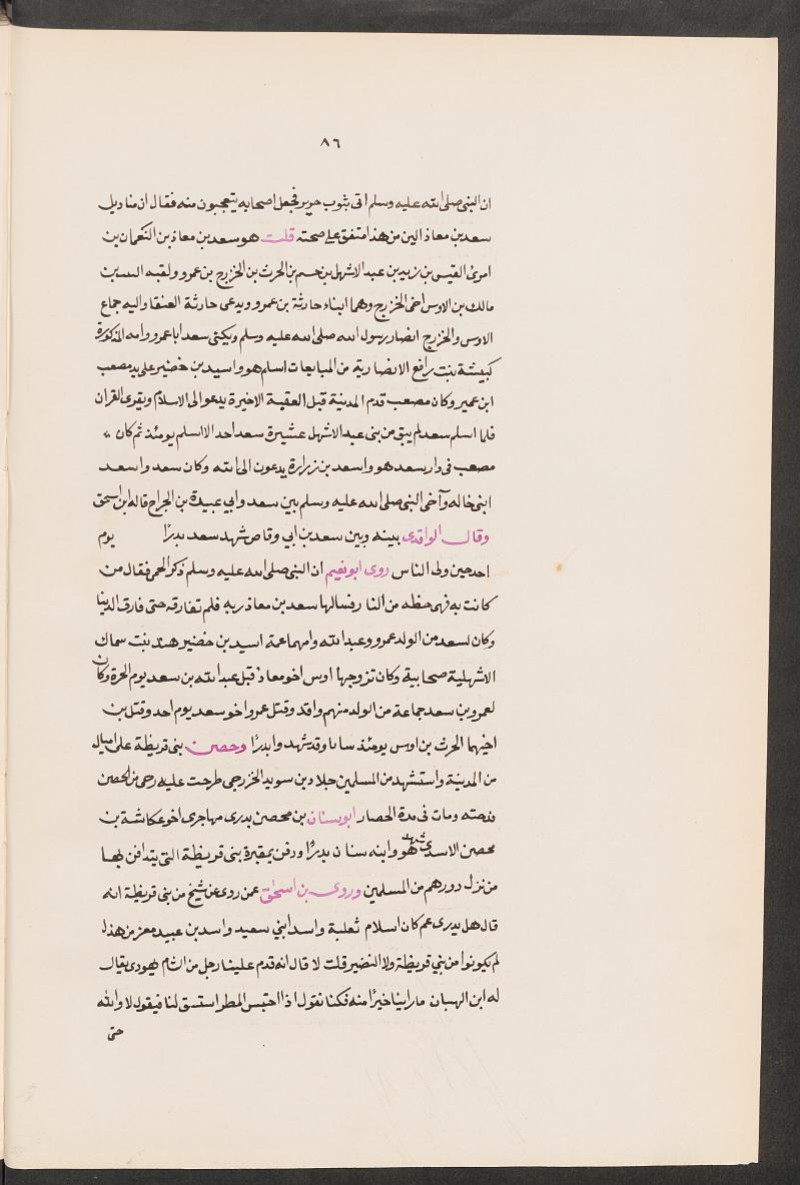 ٨٦
ان النبي صلى الله عليه وسلم اتى بثوب حرير فجعل اصحابه يتعجبون منه فقال ان مناديل
سعد بن معاذ الين من هذا متفق على صحته قلت هو سعد بن معاذ بن النعمان بن
امرئ القيس بن زيد بن عبد الاشهل بن جسم بن الحرث بن الخزرج بن عمرو ولقبه
مالك بن الاوس اخى الخزرج وهما ابناء حارثة بن عمرو ويدعى حارثة العنقا واليه جماع
الاوس والخزرج انصار رسول الله صلى الله عليه وسلم ويكنى سعد ابا عمرو وامه المذكورة
كبيشة بنت رافع الانصارية من المبايعات اسلم هو واسيد بن خضير على يد مصعب
ابن عمير وكان مصعب قدم المدينة قبل العقبة الاخيرة يدعو الى الاسلام ويقرى القران
فلما اسلم سعد لم يبق من بنى عبد الاشهل عشيرة سعد احد الا اسلم يومئذ ثم كان
مصعب فى دار سعد هو واسعد بن زرارة يدعون الى الله وكان سعد واسعد
ابنى خاله وآخى النبي صلى الله عليه وسلم بين سعد وابي عبيدة بن الجراح قاله ابن اسحق
وقال الواقدى بينه وبين سعد بن ابي وقاص شهد سعد بدرًا يوم
احد حين ولى الناس روى ابو نعيم ان النبي صلى الله عليه وسلم ذكر الحمى فقال من
كانت به فهى حظه من النار فسالها سعد بن معاذ ربه فلم تفارقه حتى فارق الدينا
وكان لسعد من الولد عمرو وعبد الله وامهما عمة اسيد بن خضير هند بنت سماك
الاشهلية صحابية وكان تزوجها اوس اخو معاذ قبل عبد الله بن سعد يوم الحرة وكان
لعمرو بن سعد جماعة من الولد منهم واقد وقتل عمرو اخو سعد يوم احد وقتل بن
اخيهما الحرث بن اوس يومئذ وقد شهدوا بدرًا وحصن بنى قريظة على اميال
من المدينة واستشهد من المسلمين خلاد بن سويد الخزرجى طرحت عليه رحى من الحصن
ومات فى مدة الحصار ابو سنان بن محصن بدرى مهاجرى اخو عكاشة بن
محصن الاسدى شهد هو وابنه سنان بدرًا ودفن بمقبرة بنى قريظة التى يتدافن بها
من نزل دورهم من المسلمين وروى بن اسحق عمن روى عن شيخ من بنى قريظة انه
قال هل يدرى عم كان اسلام ثعلبة واسد ابني سعيد واسد بن عبيد من هذل
لم يكونوا من بني قريظة ولا النضير قلت لا قال انه قدم علينا رجل من الشام يهودى يقال
له ابن الهيبان ما راينا خيرًا منه فكنا نقول اذا احتبس المطر استسق لنا فيقول لا والله
حتى